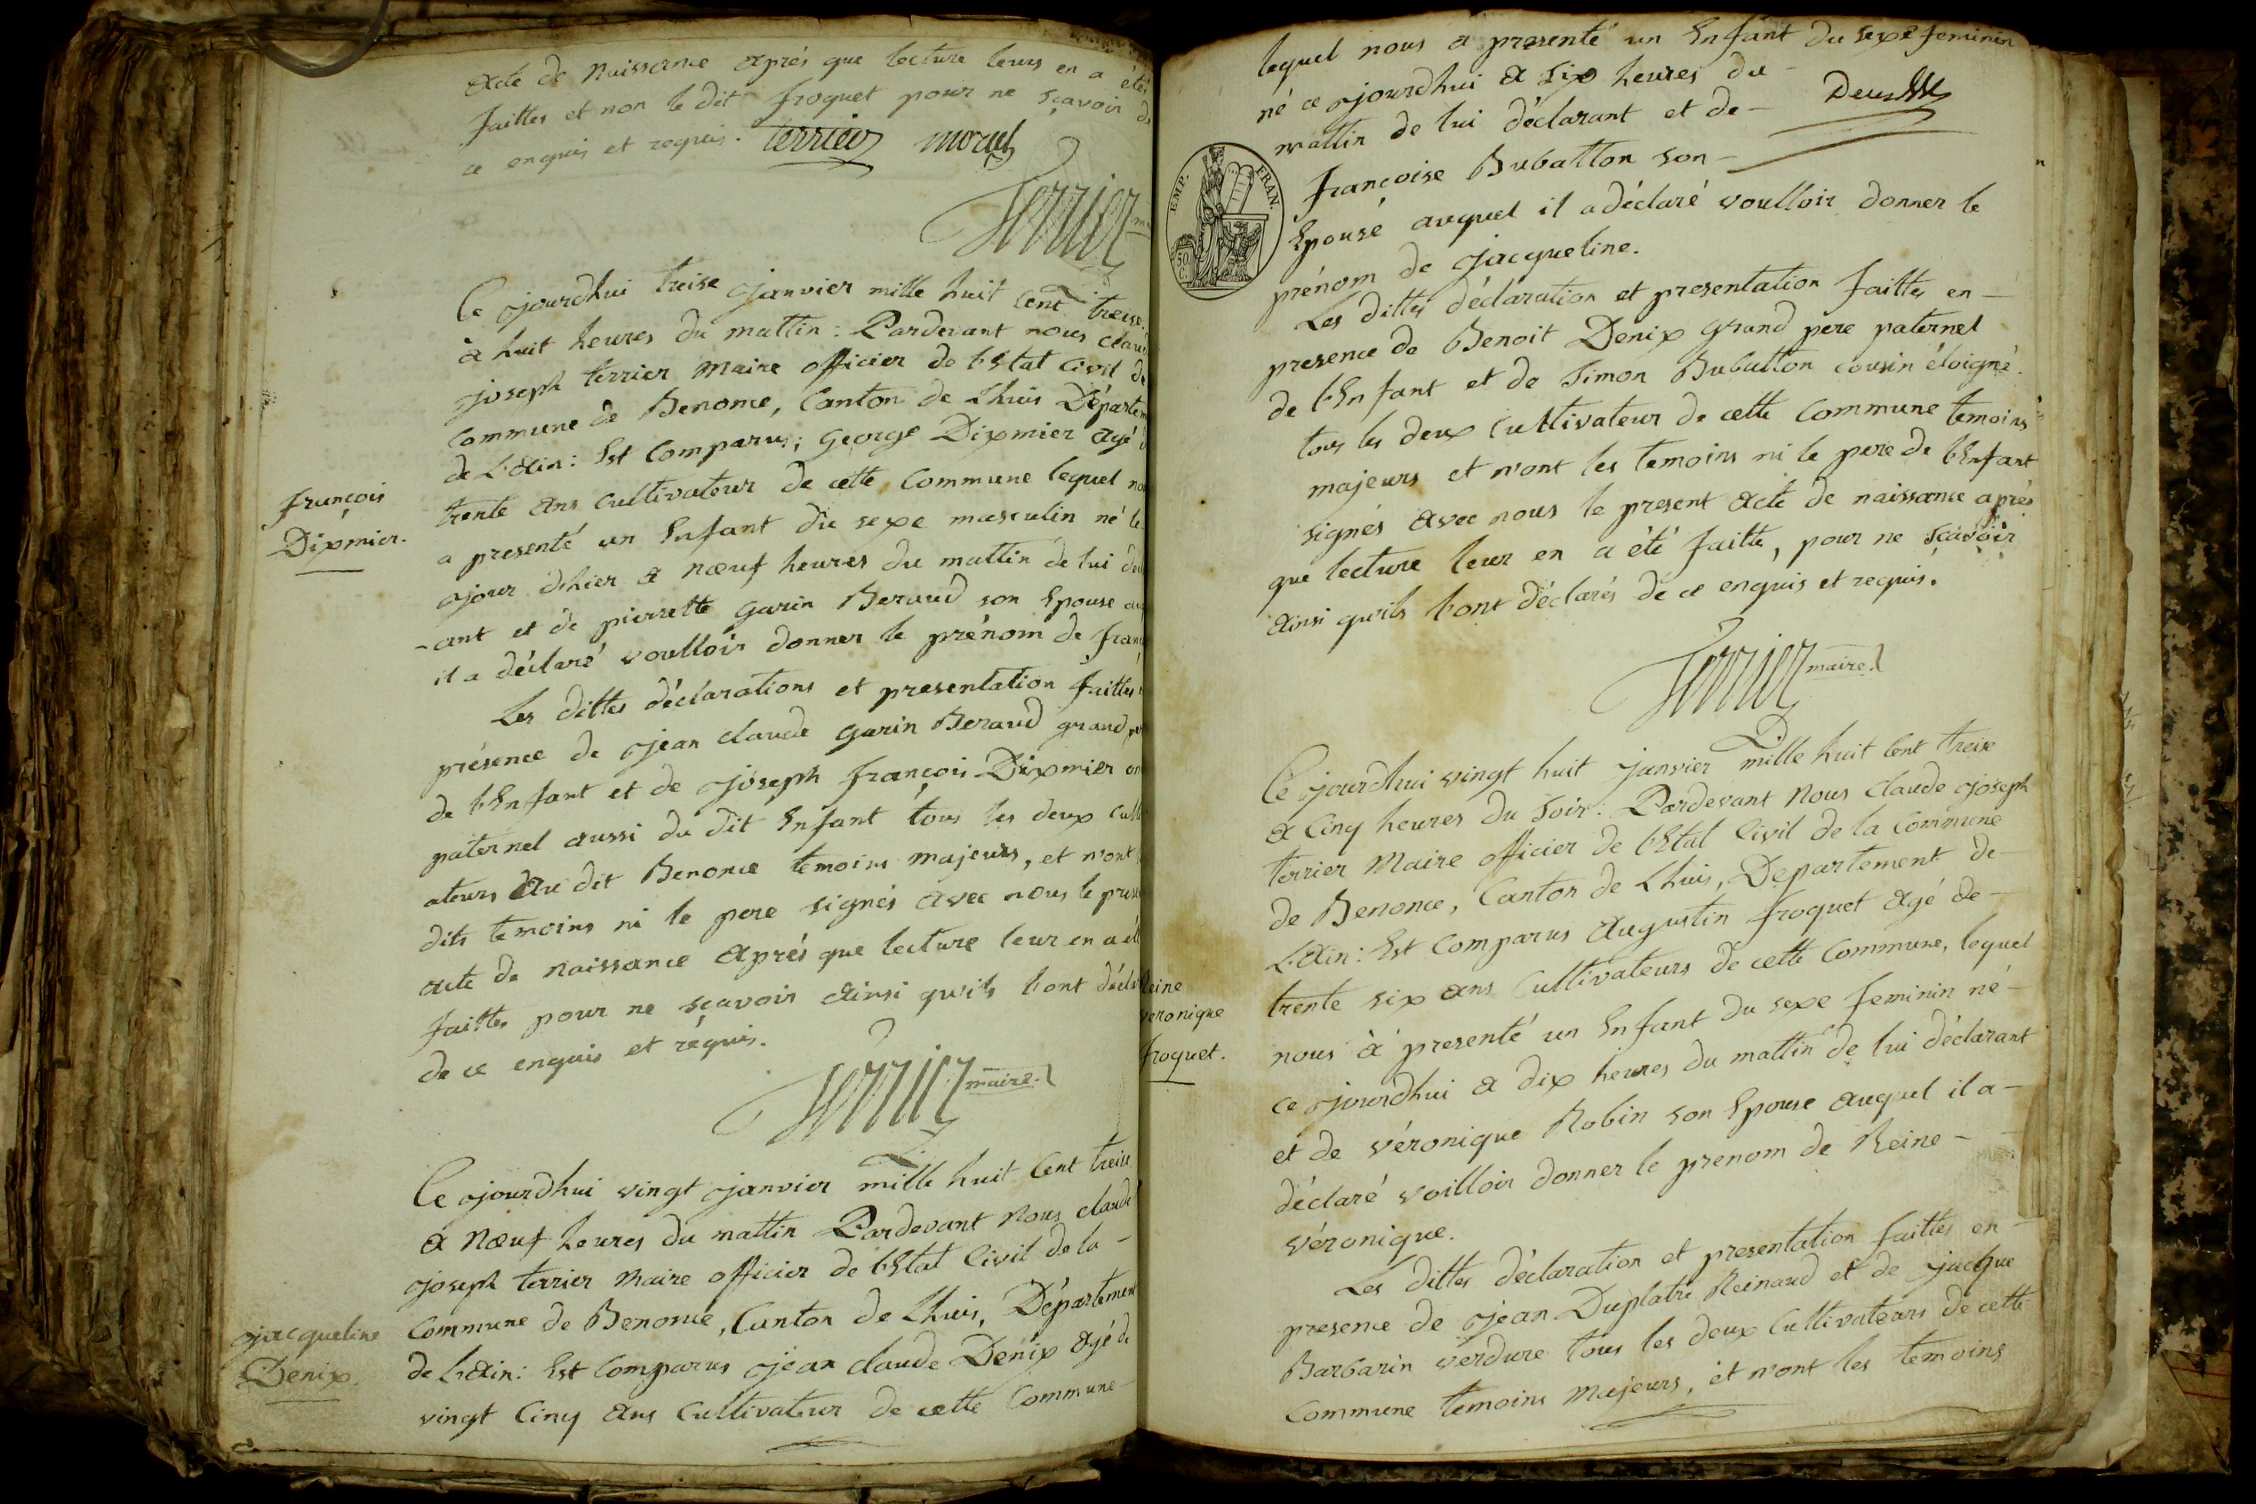 acte de Naissance aprés que lecture leurs en a été
faittes et non le dit froquet pour ne sçavoir de
ce enquis et requis. terrier morel
Terrier
Ce ojourdhui treise janvier mille huit Cent treise
à huit heures du mattin: Pardevant nous Claude
joseph terrier Maire officier de l'Etat Civil de
Commune de Benonce, Canton de Lhuis Départem
de L'Ain: Est Comparus; George Dixmier agé
trente ans Cultivateur de cette Commune lequel
a presenté un Enfant du sexe masculin né le
françois
Dixmier.
ojour d'hier a nœuf heures du mattin de lui
-ant et de pierrette garin Beraud son Epouse
il a déclaré voulloir donner le prénom de
Les dittes déclarations et presentation faittes
présence de jean claude garin Beraud grand
de l'Enfant et de joseph françois Dixmier
paternel aussi du dit Enfant tous les deux
ateurs du dit Benonce temoins majeurs, et n'ont
dits temoins ni le pere signés avec nous le
acte de naissance aprés que lecture leur en a
faittes pour ne sçavoir ainsi qu'ils l'ont
de ce enquis et requis.
Terrier maire
Ce ojourdhui vingt janvier mille huit Cent treise
a Nœuf heures du mattin Pardevant Nous claude
joseph terrier Maire officier de l'Etat Civil de la -
Commune de Benonce, Canton de Lhuis, Département
de L'Ain: Est Comparus jean claude Denix agé de
vingt Cinq ans Cultivateur de cette Commune
jacqueline
Denix.
lequel nous a presenté un Enfant du sexe feminin
né ce ojourdhui a six heures du -
mattin de lui déclarant et de -
françoise Bubatton son -
Epouse auquel il a déclaré voulloir donner le
prénom de jacqueline.
EMP. FRAN.
50 C.
Les dittes déclaration et presentation faittes en -
presence de Benoit Denix grand pere paternel
de l'Enfant et de Simon Bubatton cousin éloigné.
tous les deux Cultivateur de cette Commune temoins
majeurs et n'ont les temoins ni le pere de l'Enfant
signés avec nous le present acte de naissance aprés
que lecture leur en a été faitte, pour ne sçavoir
ainsi qu'ils l'ont déclarés de ce enquis et requis.
Terrier maire
Ce ojourdhui vingt huit janvier mille huit Cent treise
a Cinq heures du Soir: Pardevant Nous claude joseph
terrier Maire officier de l'Etat Civil de la Commune
de Benonce, Canton de Lhuis, Departement de -
L'Ain: Est Comparus Augustin froquet agé de -
trente six ans Cultivateurs de cette Commune, lequel
nous à presenté un Enfant du sexe feminin né -
Reine
Veronique
froquet.
ce ojourdhui a dix heures du mattin de lui déclarant
et de véronique Robin son Epouse auquel il a -
déclaré voilloir donner le prenom de Reine -
véronique.
Les dittes déclaration et presentation faittes en -
presence de jean Duplatre Reinaud et de jacque
Barbarin verdure tous les deux Cultivateurs de cette
Commune temoins Majeurs, et n'ont les temoins